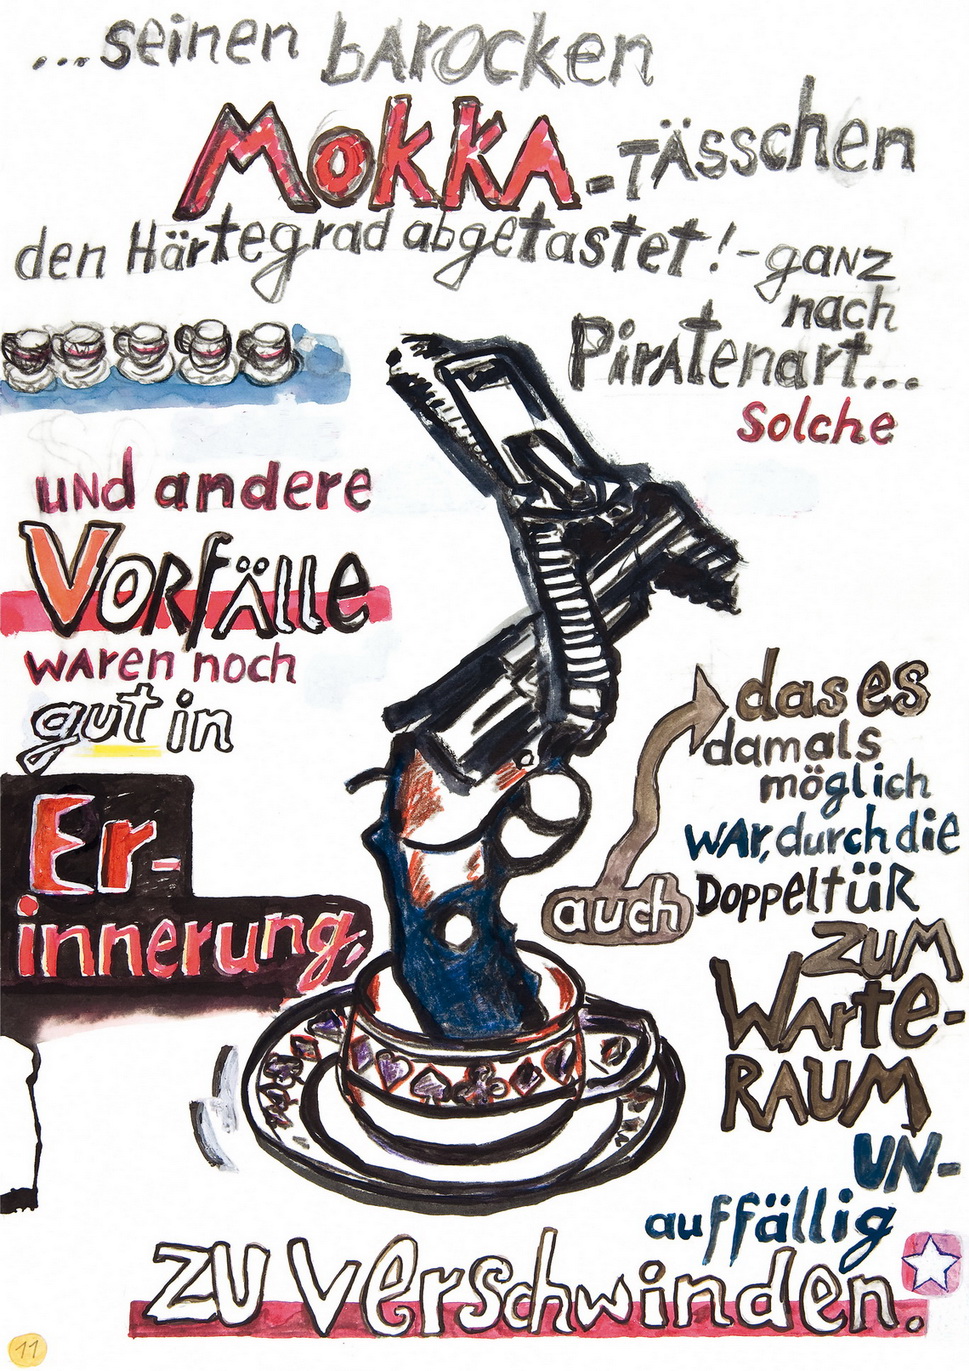 ...seinen barocken
Mokka-Tässchen
den Härtegrad abgetastet! - ganz
nach
Piratenart...
Solche
und andere
Vorfälle
waren noch
gut in
Er-
innerung,
auch
das es
damals
möglich
war, durch die
Doppeltür
zum
Warte-
raum
un-
auffällig
zu verschwinden.
11